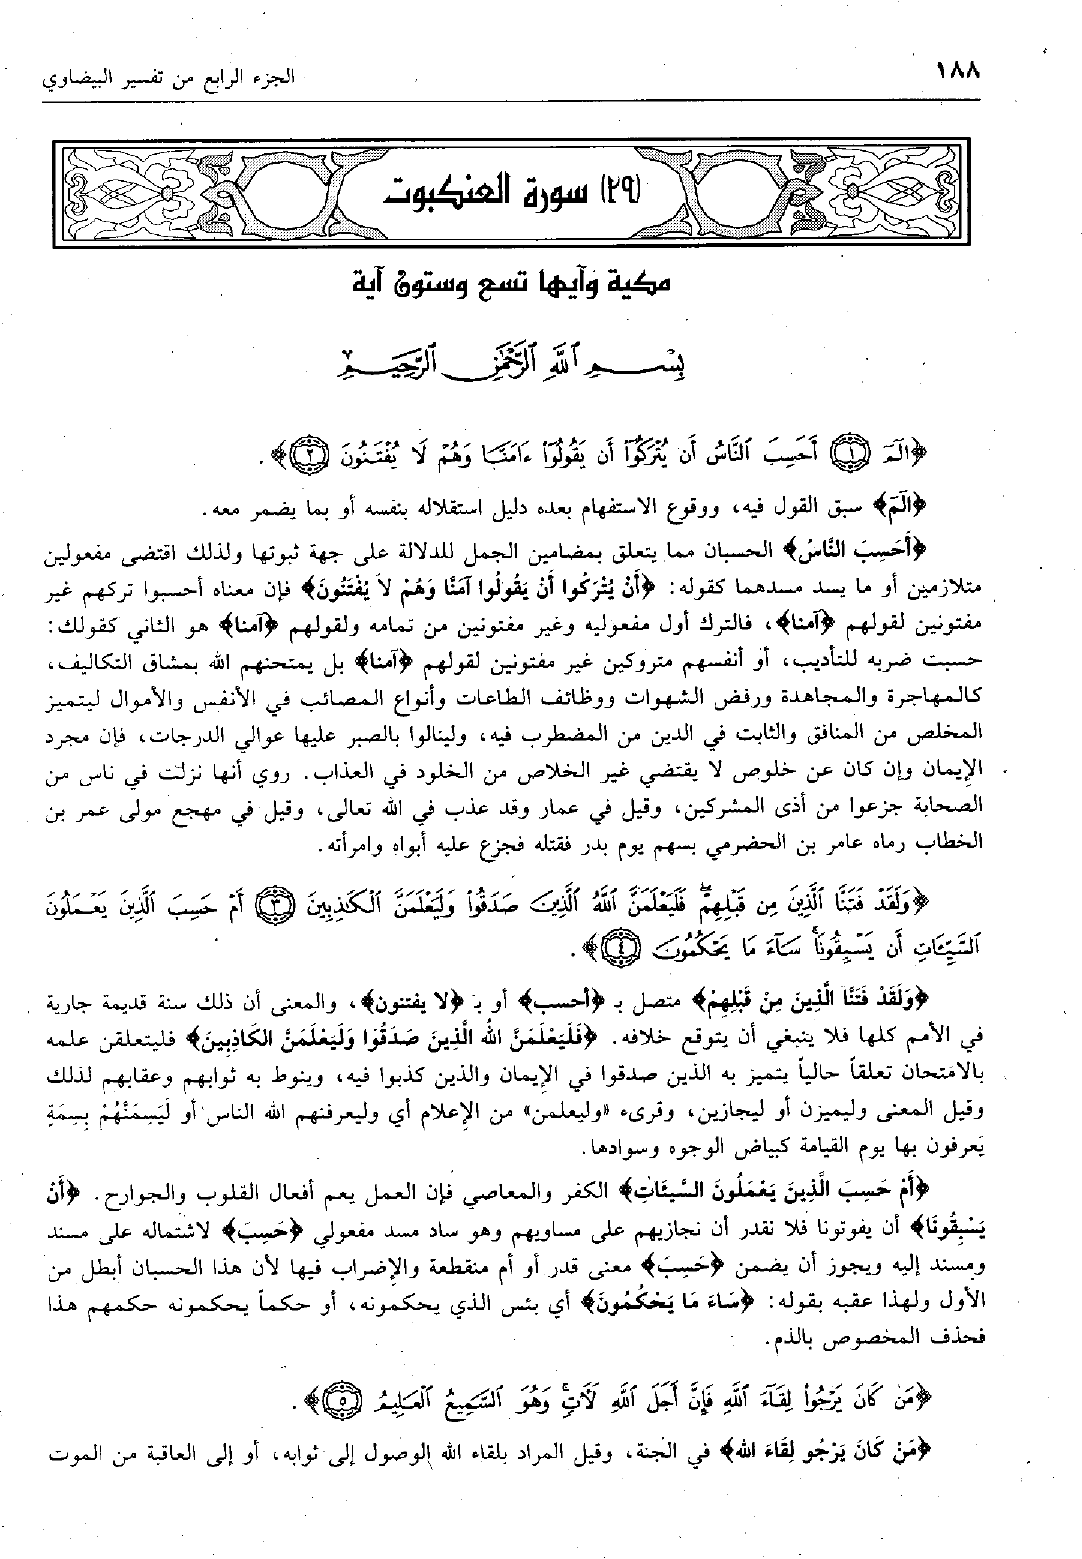 ١٨٨
الجزء الرابع من تفسير البيضاوي
(٢٩) سورة العنكبوت
مكية وآيها تسع وستون آية
بِسْمِ ٱللَّهِ ٱلرَّحْمَٰنِ ٱلرَّحِيمِ
﴿الٓمٓ ﴿١﴾ أَحَسِبَ ٱلنَّاسُ أَن يُتْرَكُوٓا۟ أَن يَقُولُوٓا۟ ءَامَنَّا وَهُمْ لَا يُفْتَنُونَ ﴿٢﴾﴾.
﴿الٓمٓ﴾ سبق القول فيه، ووقوع الاستفهام بعده دليل استقلاله بنفسه أو بما يضمر معه.
﴿أَحَسِبَ النَّاسُ﴾ الحسبان مما يتعلق بمضامين الجمل للدلالة على جهة ثبوتها ولذلك اقتضى مفعولين
متلازمين أو ما يسد مسدهما كقوله: ﴿أَنْ يُتْرَكُوا أَنْ يَقُولُوا آمَنَّا وَهُمْ لاَ يُفْتَنُونَ﴾ فإن معناه أحسبوا تركهم غير
مفتونين لقولهم ﴿آمنا﴾، فالترك أول مفعوليه وغير مفتونين من تمامه ولقولهم ﴿آمنا﴾ هو الثاني كقولك:
حسبت ضربه للتأديب، أو أنفسهم متروكين غير مفتونين لقولهم ﴿آمنا﴾ بل يمتحنهم الله بمشاق التكاليف،
كالمهاجرة والمجاهدة ورفض الشهوات ووظائف الطاعات وأنواع المصائب في الأنفس والأموال ليتميز
المخلص من المنافق والثابت في الدين من المضطرب فيه، ولينالوا بالصبر عليها عوالي الدرجات، فإن مجرد
الإيمان وإن كان عن خلوص لا يقتضي غير الخلاص من الخلود في العذاب. روي أنها نزلت في ناس من
الصحابة جزعوا من أذى المشركين، وقيل في عمار وقد عذب في الله تعالى، وقيل في مهجع مولى عمر بن
الخطاب رماه عامر بن الحضرمي بسهم يوم بدر فقتله فجزع عليه أبواه وامرأته.
﴿وَلَقَدْ فَتَنَّا ٱلَّذِينَ مِن قَبْلِهِمْ ۖ فَلَيَعْلَمَنَّ ٱللَّهُ ٱلَّذِينَ صَدَقُوا۟ وَلَيَعْلَمَنَّ ٱلْكَٰذِبِينَ ﴿٣﴾ أَمْ حَسِبَ ٱلَّذِينَ يَعْمَلُونَ
ٱلسَّيِّـَٔاتِ أَن يَسْبِقُونَا ۚ سَآءَ مَا يَحْكُمُونَ ﴿٤﴾﴾.
﴿وَلَقَدْ فَتَنَّا الَّذِينَ مِنْ قَبْلِهِمْ﴾ متصل بـ ﴿أحسب﴾ أو بـ ﴿لا يفتنون﴾، والمعنى أن ذلك سنة قديمة جارية
في الأمم كلها فلا ينبغي أن يتوقع خلافه. ﴿فَلَيَعْلَمَنَّ الله الَّذِينَ صَدَقُوا وَلَيَعْلَمَنَّ الكَاذِبِينَ﴾ فليتعلقن علمه
بالامتحان تعلقاً حالياً يتميز به الذين صدقوا في الإيمان والذين كذبوا فيه، وينوط به ثوابهم وعقابهم لذلك
وقيل المعنى وليميزن أو ليجازين، وقرىء «وليعلمن» من الإعلام أي وليعرفنهم الله الناس أو لَيَسِمَنَّهُمْ بِسِمَةٍ
يَعرفون بها يوم القيامة كبياض الوجوه وسوادها.
﴿أَمْ حَسِبَ الَّذِينَ يَعْمَلُونَ السَّيئَاتِ﴾ الكفر والمعاصي فإن العمل يعم أفعال القلوب والجوارح. ﴿أَنْ
يَسْبِقُونَا﴾ أن يفوتونا فلا نقدر أن نجازيهم على مساويهم وهو ساد مسد مفعولي ﴿حَسِبَ﴾ لاشتماله على مسند
ومسند إليه ويجوز أن يضمن ﴿حَسِبَ﴾ معنى قدر أو أم منقطعة والإضراب فيها لأن هذا الحسبان أبطل من
الأول ولهذا عقبه بقوله: ﴿سَاءَ مَا يَحْكُمُونَ﴾ أي بئس الذي يحكمونه، أو حكماً يحكمونه حكمهم هذا
فحذف المخصوص بالذم.
﴿مَن كَانَ يَرْجُوا۟ لِقَآءَ ٱللَّهِ فَإِنَّ أَجَلَ ٱللَّهِ لَآتٍ ۚ وَهُوَ ٱلسَّمِيعُ ٱلْعَلِيمُ ﴿٥﴾﴾.
﴿مَنْ كَانَ يَرْجُو لِقَاءَ الله﴾ في الجنة، وقيل المراد بلقاء الله الوصول إلى ثوابه، أو إلى العاقبة من الموت